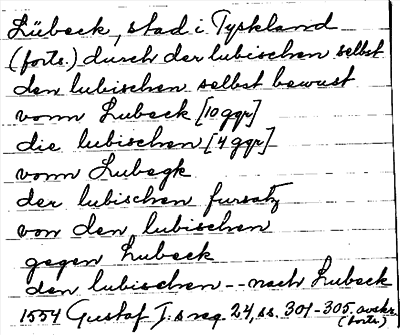 Lübeck, stad i Tyskland
(forts.) durch der lubischen selbst
den lubischen selbst bewust
vonn Lubeck [10 ggr]
die lubischen [4 ggr]
vonn Lubegk
der lubischen fursatz
von den lubischen
gegen Lubeck
den lubischen -- nach Lubeck
1554 Gustaf I:s reg. 24, ss. 301-305, avskr.
(forts.)